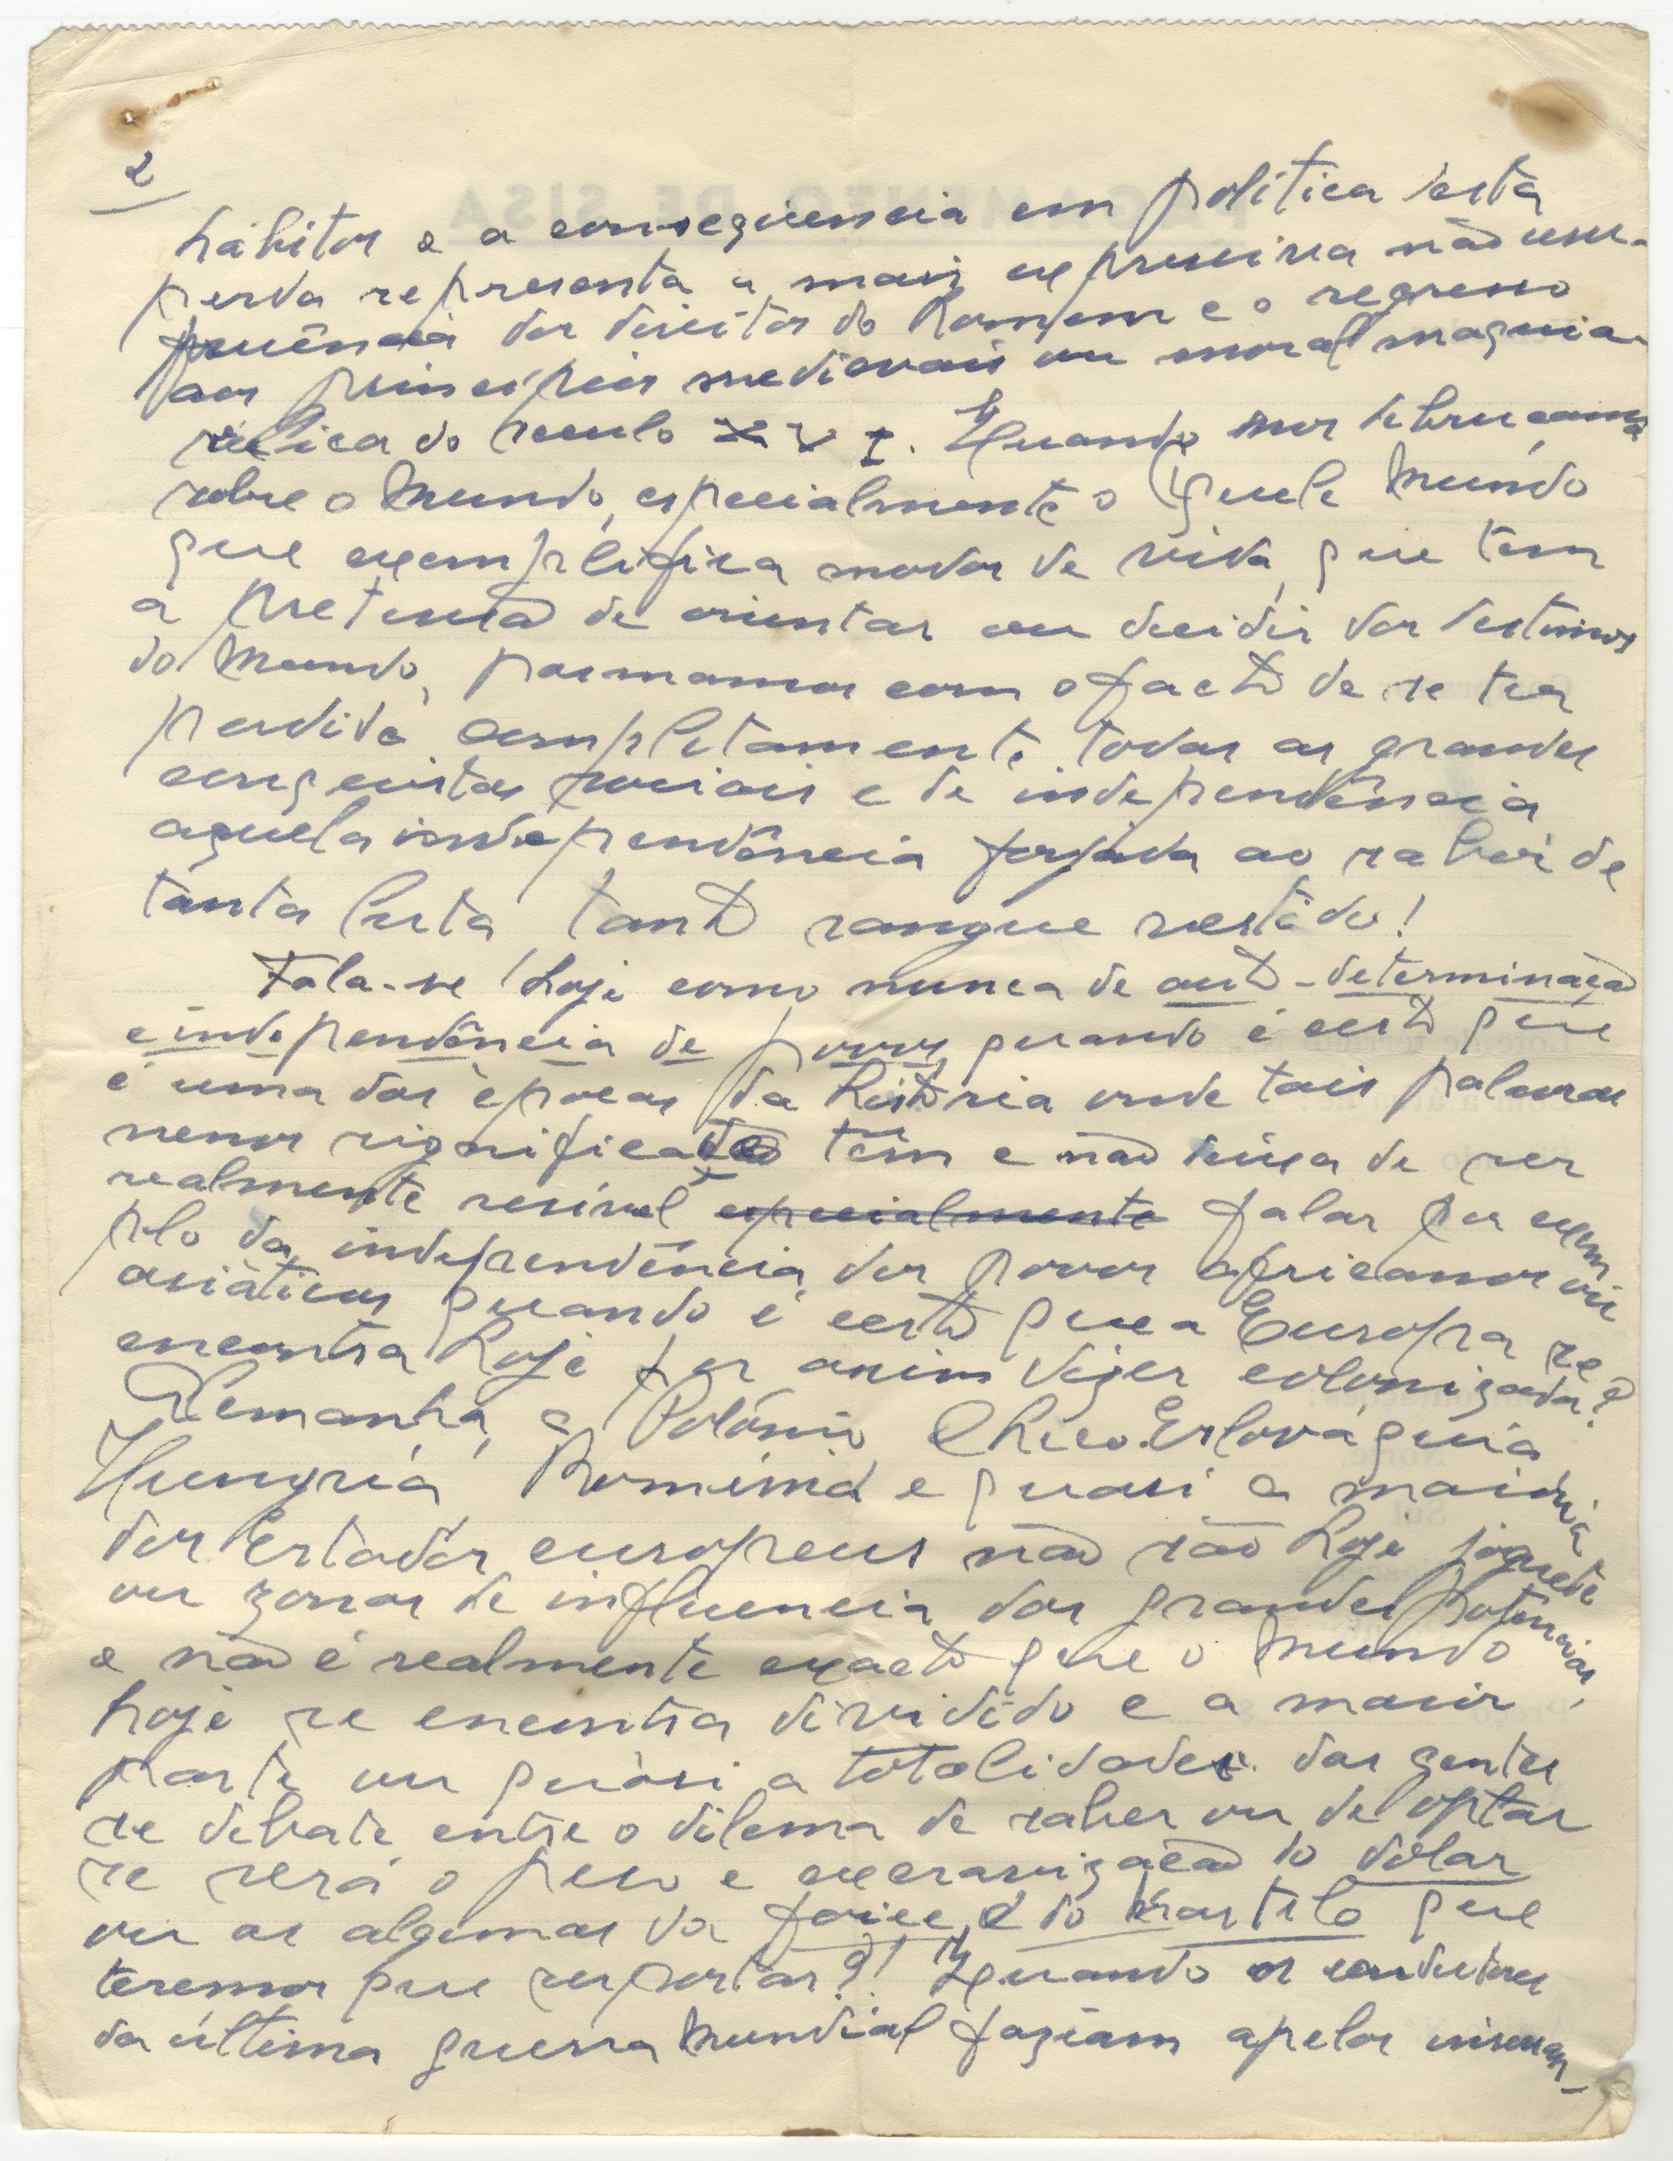 2
hábitos e a consequencia em política desta
perda representa a mais expressiva não usu-
fruência dos direitos do homem e o regresso
aos principios medievais ou moral maquia-
vélica do seculo XVI. Quando nos debruçamos
sobre o Mundo, especialmente o Mundo
que exemplifica modos de vida, que tem
a pretensão de orientar ou decidir dos destinos
do Mundo, pasmamos com o facto de se ter
perdido completamente todas as grandes
conquistas sociais e de independência
aquela independência forjada ao sabor de
tanta luta, tanto sangue vertido!
Fala-se hoje como nunca de auto-determinação
e independência de povos, quando é certo que
é uma das épocas da história onde tais palavras
menor significado têm e não deixa de ser
realmente risível especialmente falar por exem
plo da independência dos povos africanos ou
asiáticos quando é certo que a Europa se
encontra hoje por assim dizer colonizada? A
Alemanha, a Polónia, Checo-Eslováquia
Hungria, Roménia e quasi a maioria
dos Estados europeus não são hoje joguete
ou zonas de influencia das grandes potências,
e não é realmente exacto que o mundo
hoje se encontra dividido e a maior
parte ou quási a totalidade das gentes
se debate entre o dilema de saber ou de optar
se será o peso e escravização do dolar
ou as algemas da foice e do martelo que
teremos que suportar?! Quando os condutores
da última guerra Mundial faziam apelos